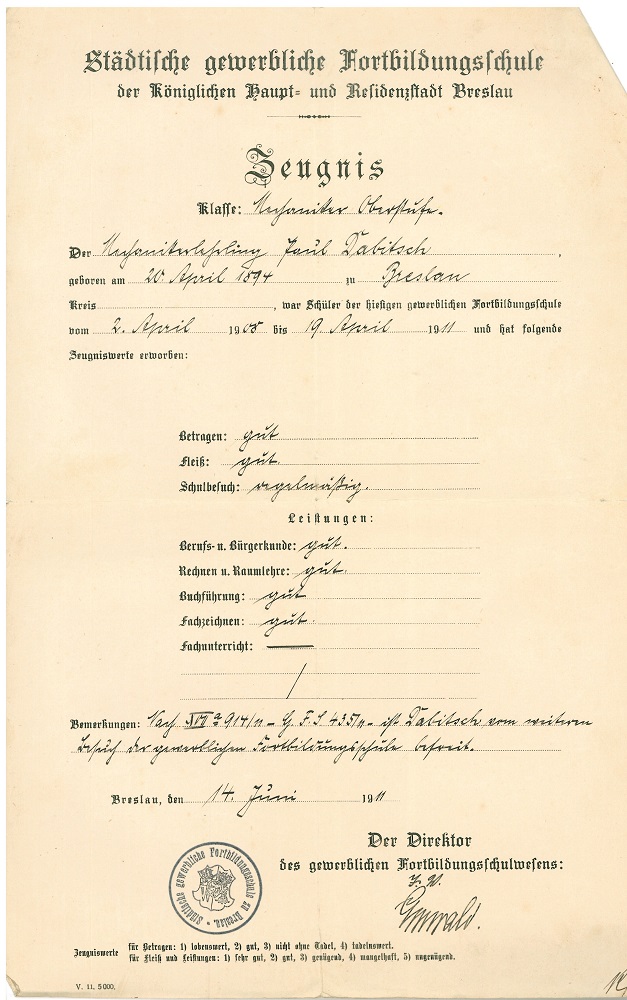 Städtische gewerbliche Fortbildungsschule
der Königlichen Haupt- und Residenzstadt Breslau
Zeugnis
Klasse: Mechaniker Oberstufe.
Der Mechanikerlehrling Paul Dabitsch,
geboren am 20. April 1894 zu Breslau
Kreis , war Schüler der hiesigen gewerblichen Fortbildungsschule
vom 2. April 1908 bis 19 April 1911 und hat folgende
Zeugniswerte erworben:
Betragen: gut
Fleiß: gut.
Schulbesuch: regelmäßig.
Leistungen:
Berufs- u. Bürgerkunde: gut.
Rechnen u. Raumlehre: gut.
Buchführung: gut
Fachzeichnen: gut.
Fachunterricht: —
Bemerkungen: Nach 914/11 – G. F. S 435/11 – ist Dabitsch vom weiteren
Besuch der gewerblichen Fortbildungsschule befreit.
Breslau, den 14. Juni 1911
Der Direktor
des gewerblichen Fortbildungsschulwesens:
Städtische gewerbliche Fortbildungsschule zu Breslau
Zeugniswerte für Betragen: 1) lobenswert, 2) gut, 3) nicht ohne Tadel, 4) tadelnswert.
für Fleiß und Leistungen: 1) sehr gut, 2) gut, 3) genügend, 4) mangelhaft, 5) ungenügend.
V. 11. 5000.